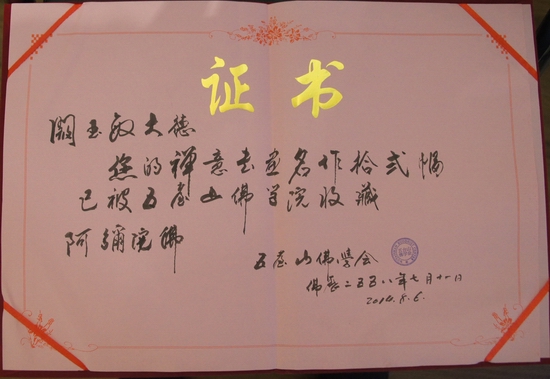 证书
闞玉敏大德
您的禅意书画名作拾贰幅
已被五台山佛学院收藏
阿彌陀佛
五台山佛學会
佛历二五五八年七月十一日
2014.8.6.